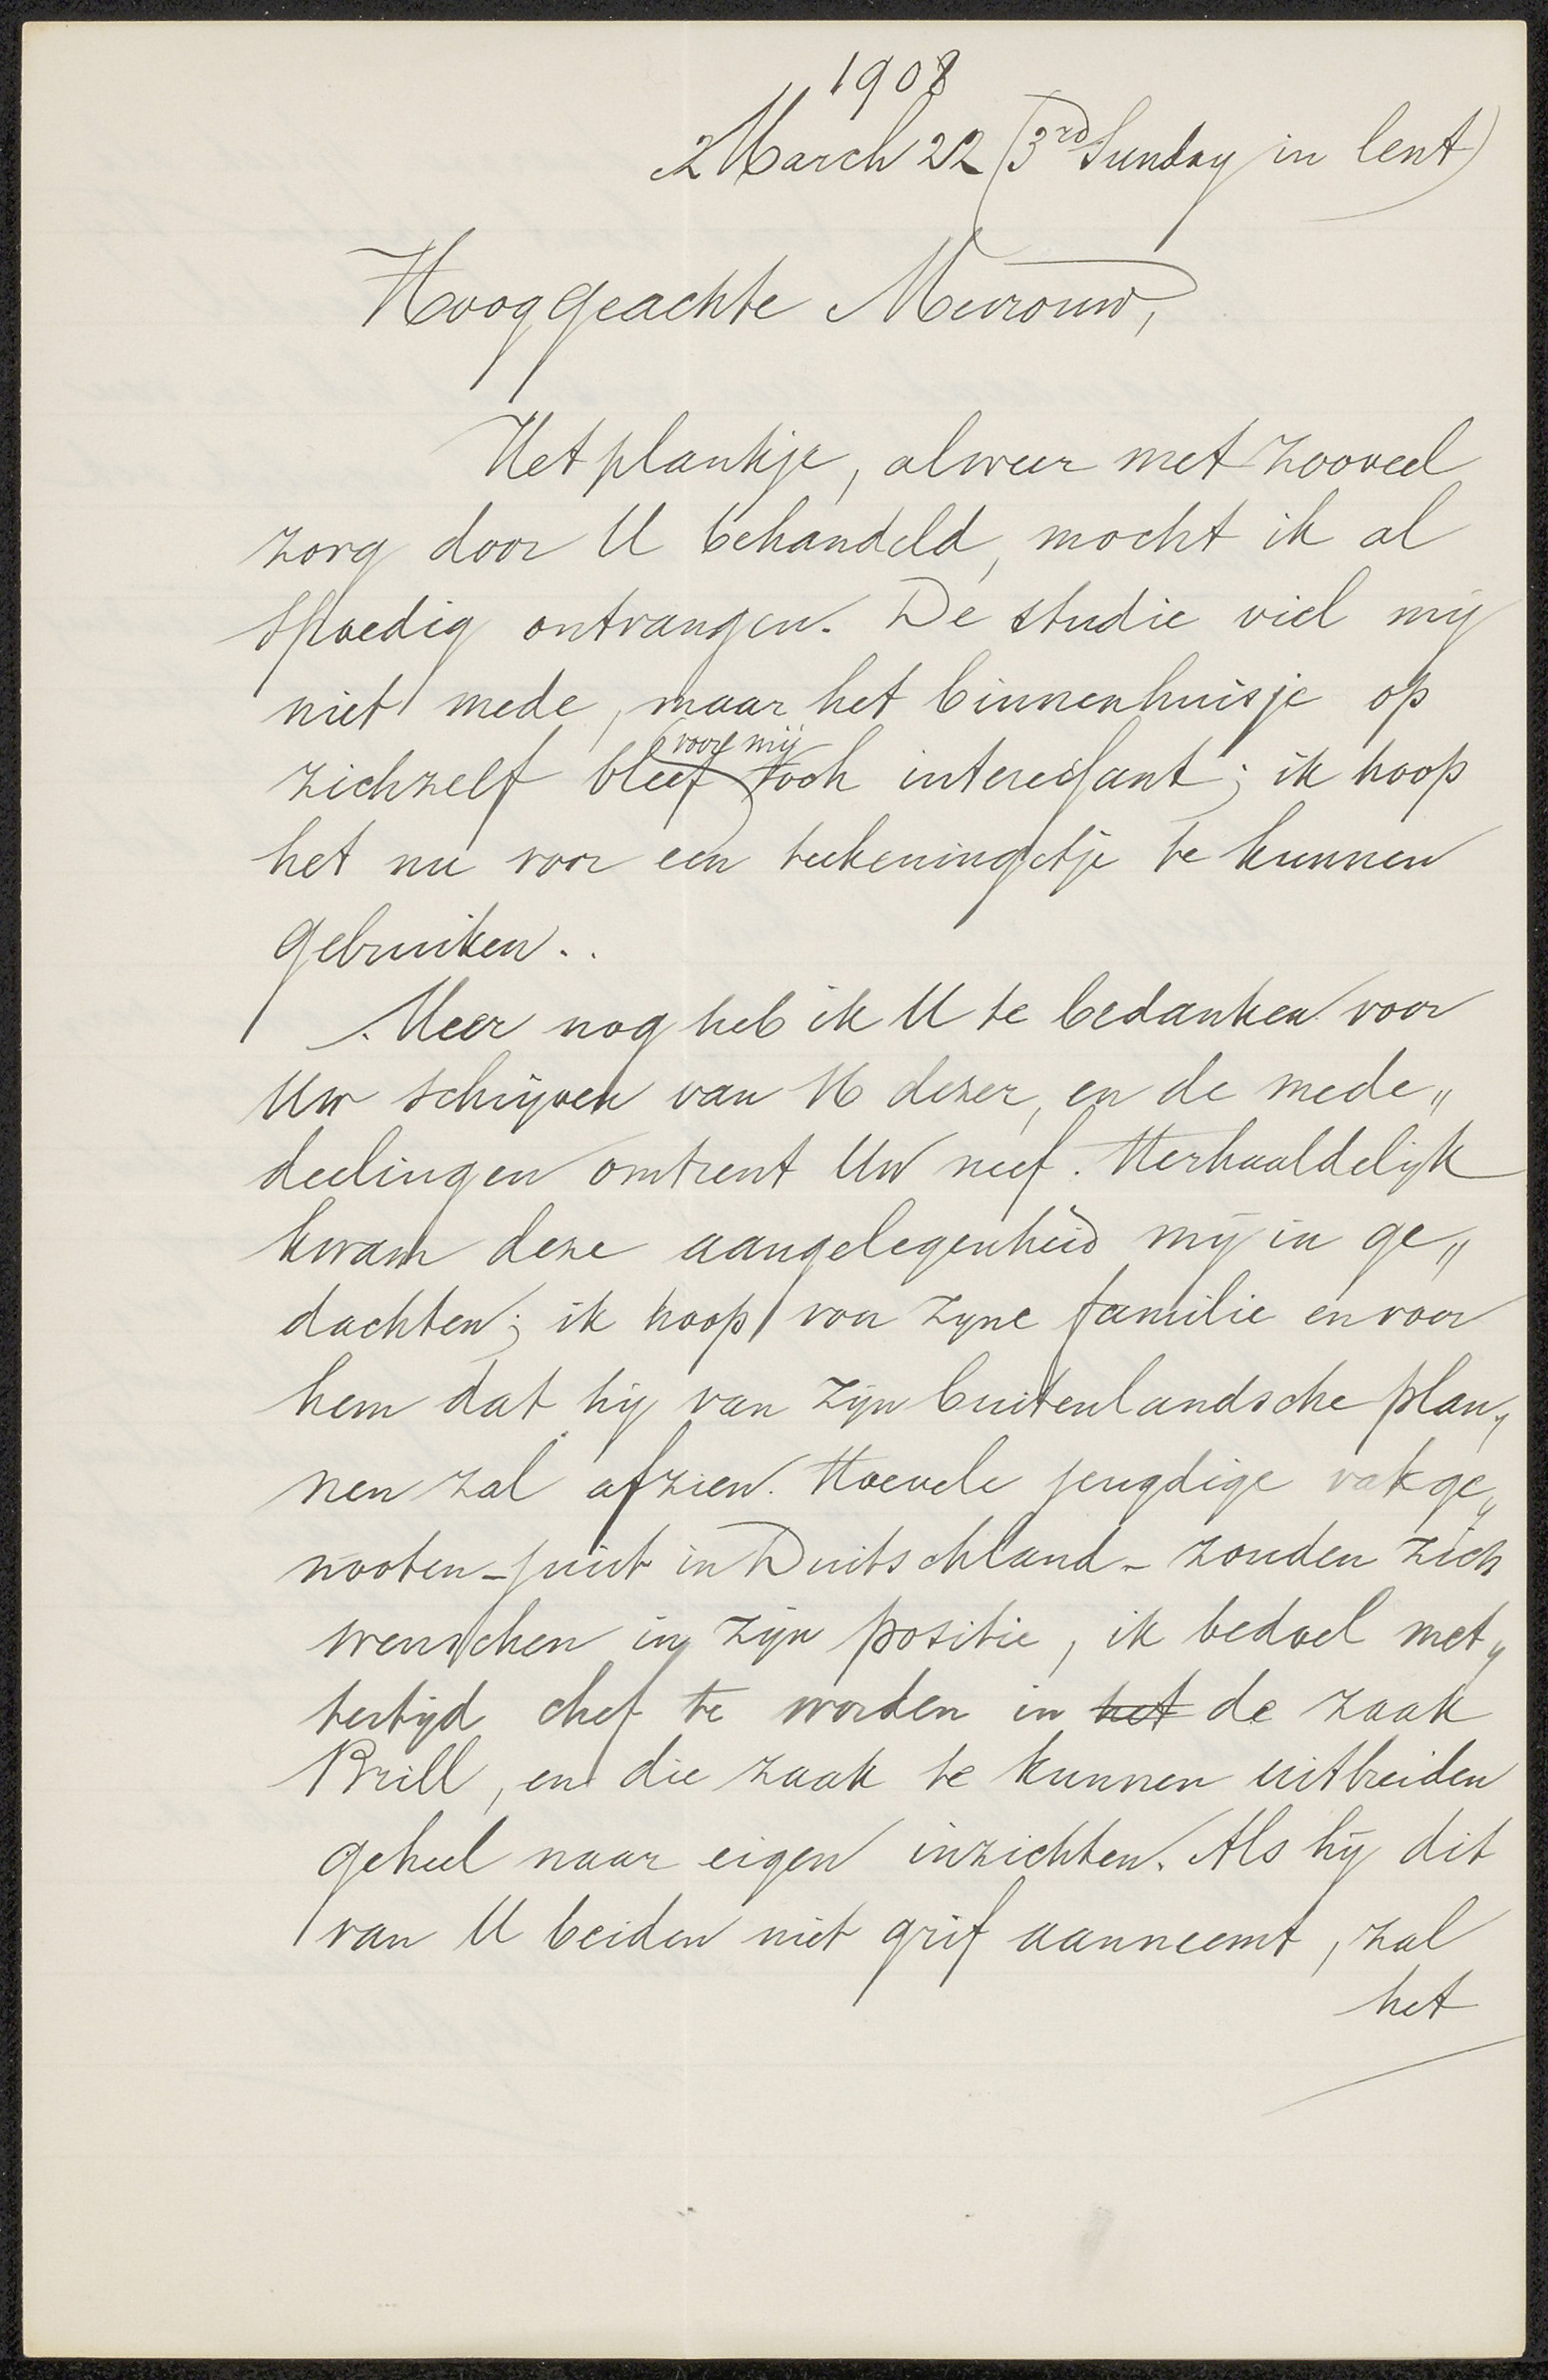 1908
March 22 (3rd Sunday in lent)
Hooggeachte Mevrouw,
Het plankje, alweer met zooveel
zorg door U behandeld, mocht ik al
spoedig ontvangen. De studie viel mij
niet mede, maar het binnenhuisje op
voor mij
zichzelf bleef toch interessant; ik hoop
het nu voor een teekeningetje te kunnen
gebruiken..
Meer nog heb ik U te bedanken voor
Uw schrijven van 16 dezer, en de mede„
deelingen omtrent Uw neef. Herhaaldelijk
kwam deze aangelegenheid mij in ge„
dachten; ik hoop voor zyne familie en voor
hem dat hij van zijn buitenlandsche plan„
nen zal afzien. Hoevele jeugdige vakge„
nooten - juist in Duitschland - zouden zich
wenschen in zijn positie, ik bedoel met„
tertijd chef te worden in het de zaak
Brill, en die zaak te kunnen uitbreiden
geheel naar eigen inzichten. Als hij dit
van U beiden niet grif aanneemt, zal
het